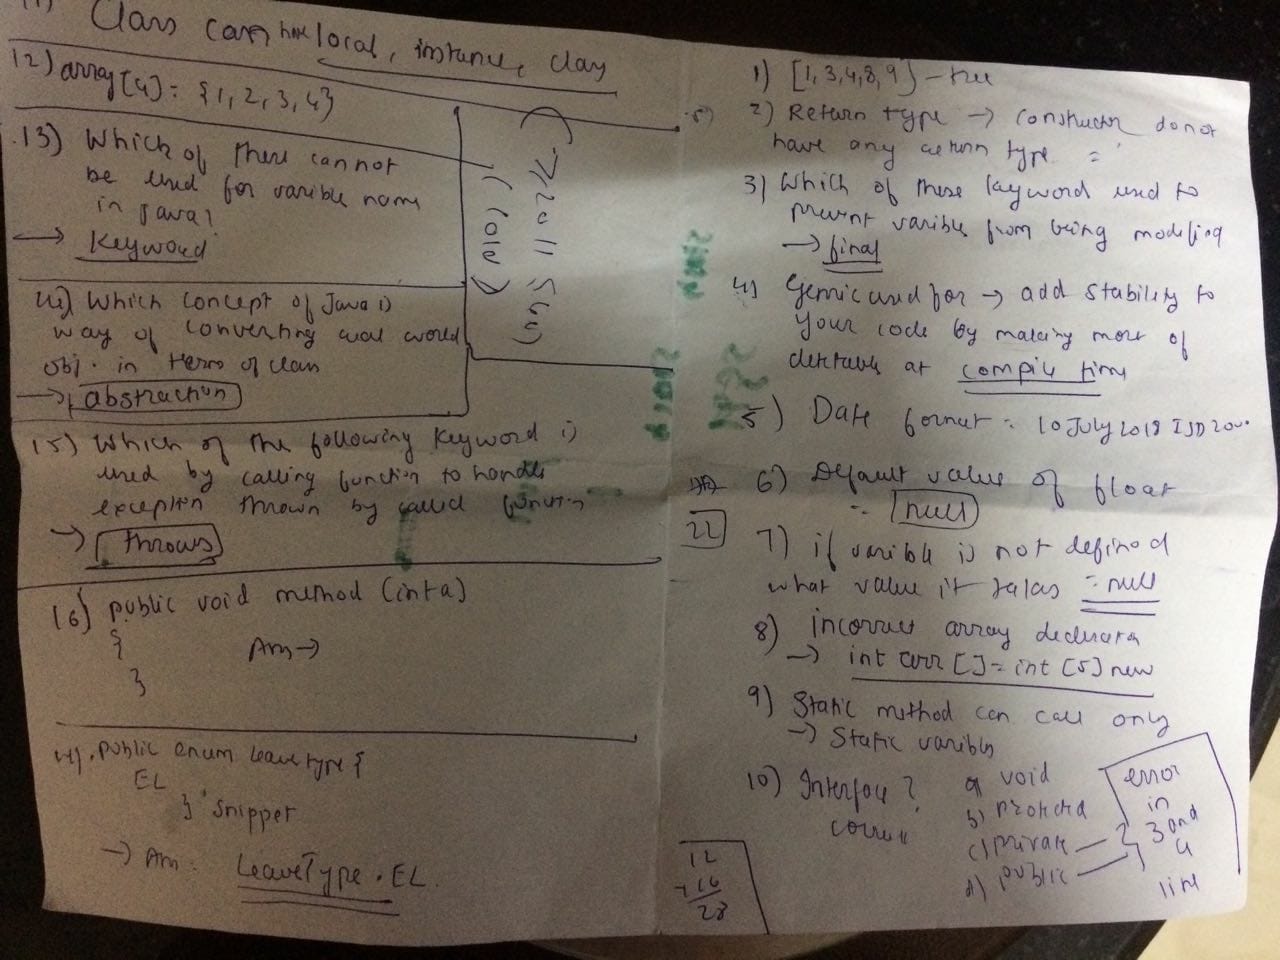 11) Class can have local, instance, clay
12) array[4]= {1, 2, 3, 4}
13) Which of there cannot
be used for varible name
in java?
→ Keyword
14) Which concept of Java is
way of converting real world
obj. in terms of class
→ abstraction
15) Which of the following keyword is
used by calling function to handle
exception thrown by called function
→ throws
16) public void method (int a)
{
Ans →
}
public enum Leavetype {
EL
} snippet
→ Ans. LeaveType.EL.
1) [1, 3, 4, 8, 9] -
2) Return type → constructor donot
have any return type =
3) Which of these keyword used to
prevent varible from being modifing
→ final
4) Genric used for → add stability to
your code by making more of
detectable at compile time
5) Date format = 10 July 2018
6) Default value of float
= null
22
7) if varible is not defined
what value it takes = null
8) incorrect array declarata
→ int arr []= int [5] new
9) Static method can call only
→ Static varibles
10) Interface? a) void
b) protected
c) private
d) public
error
in
3 and
4
line
12
+16
28